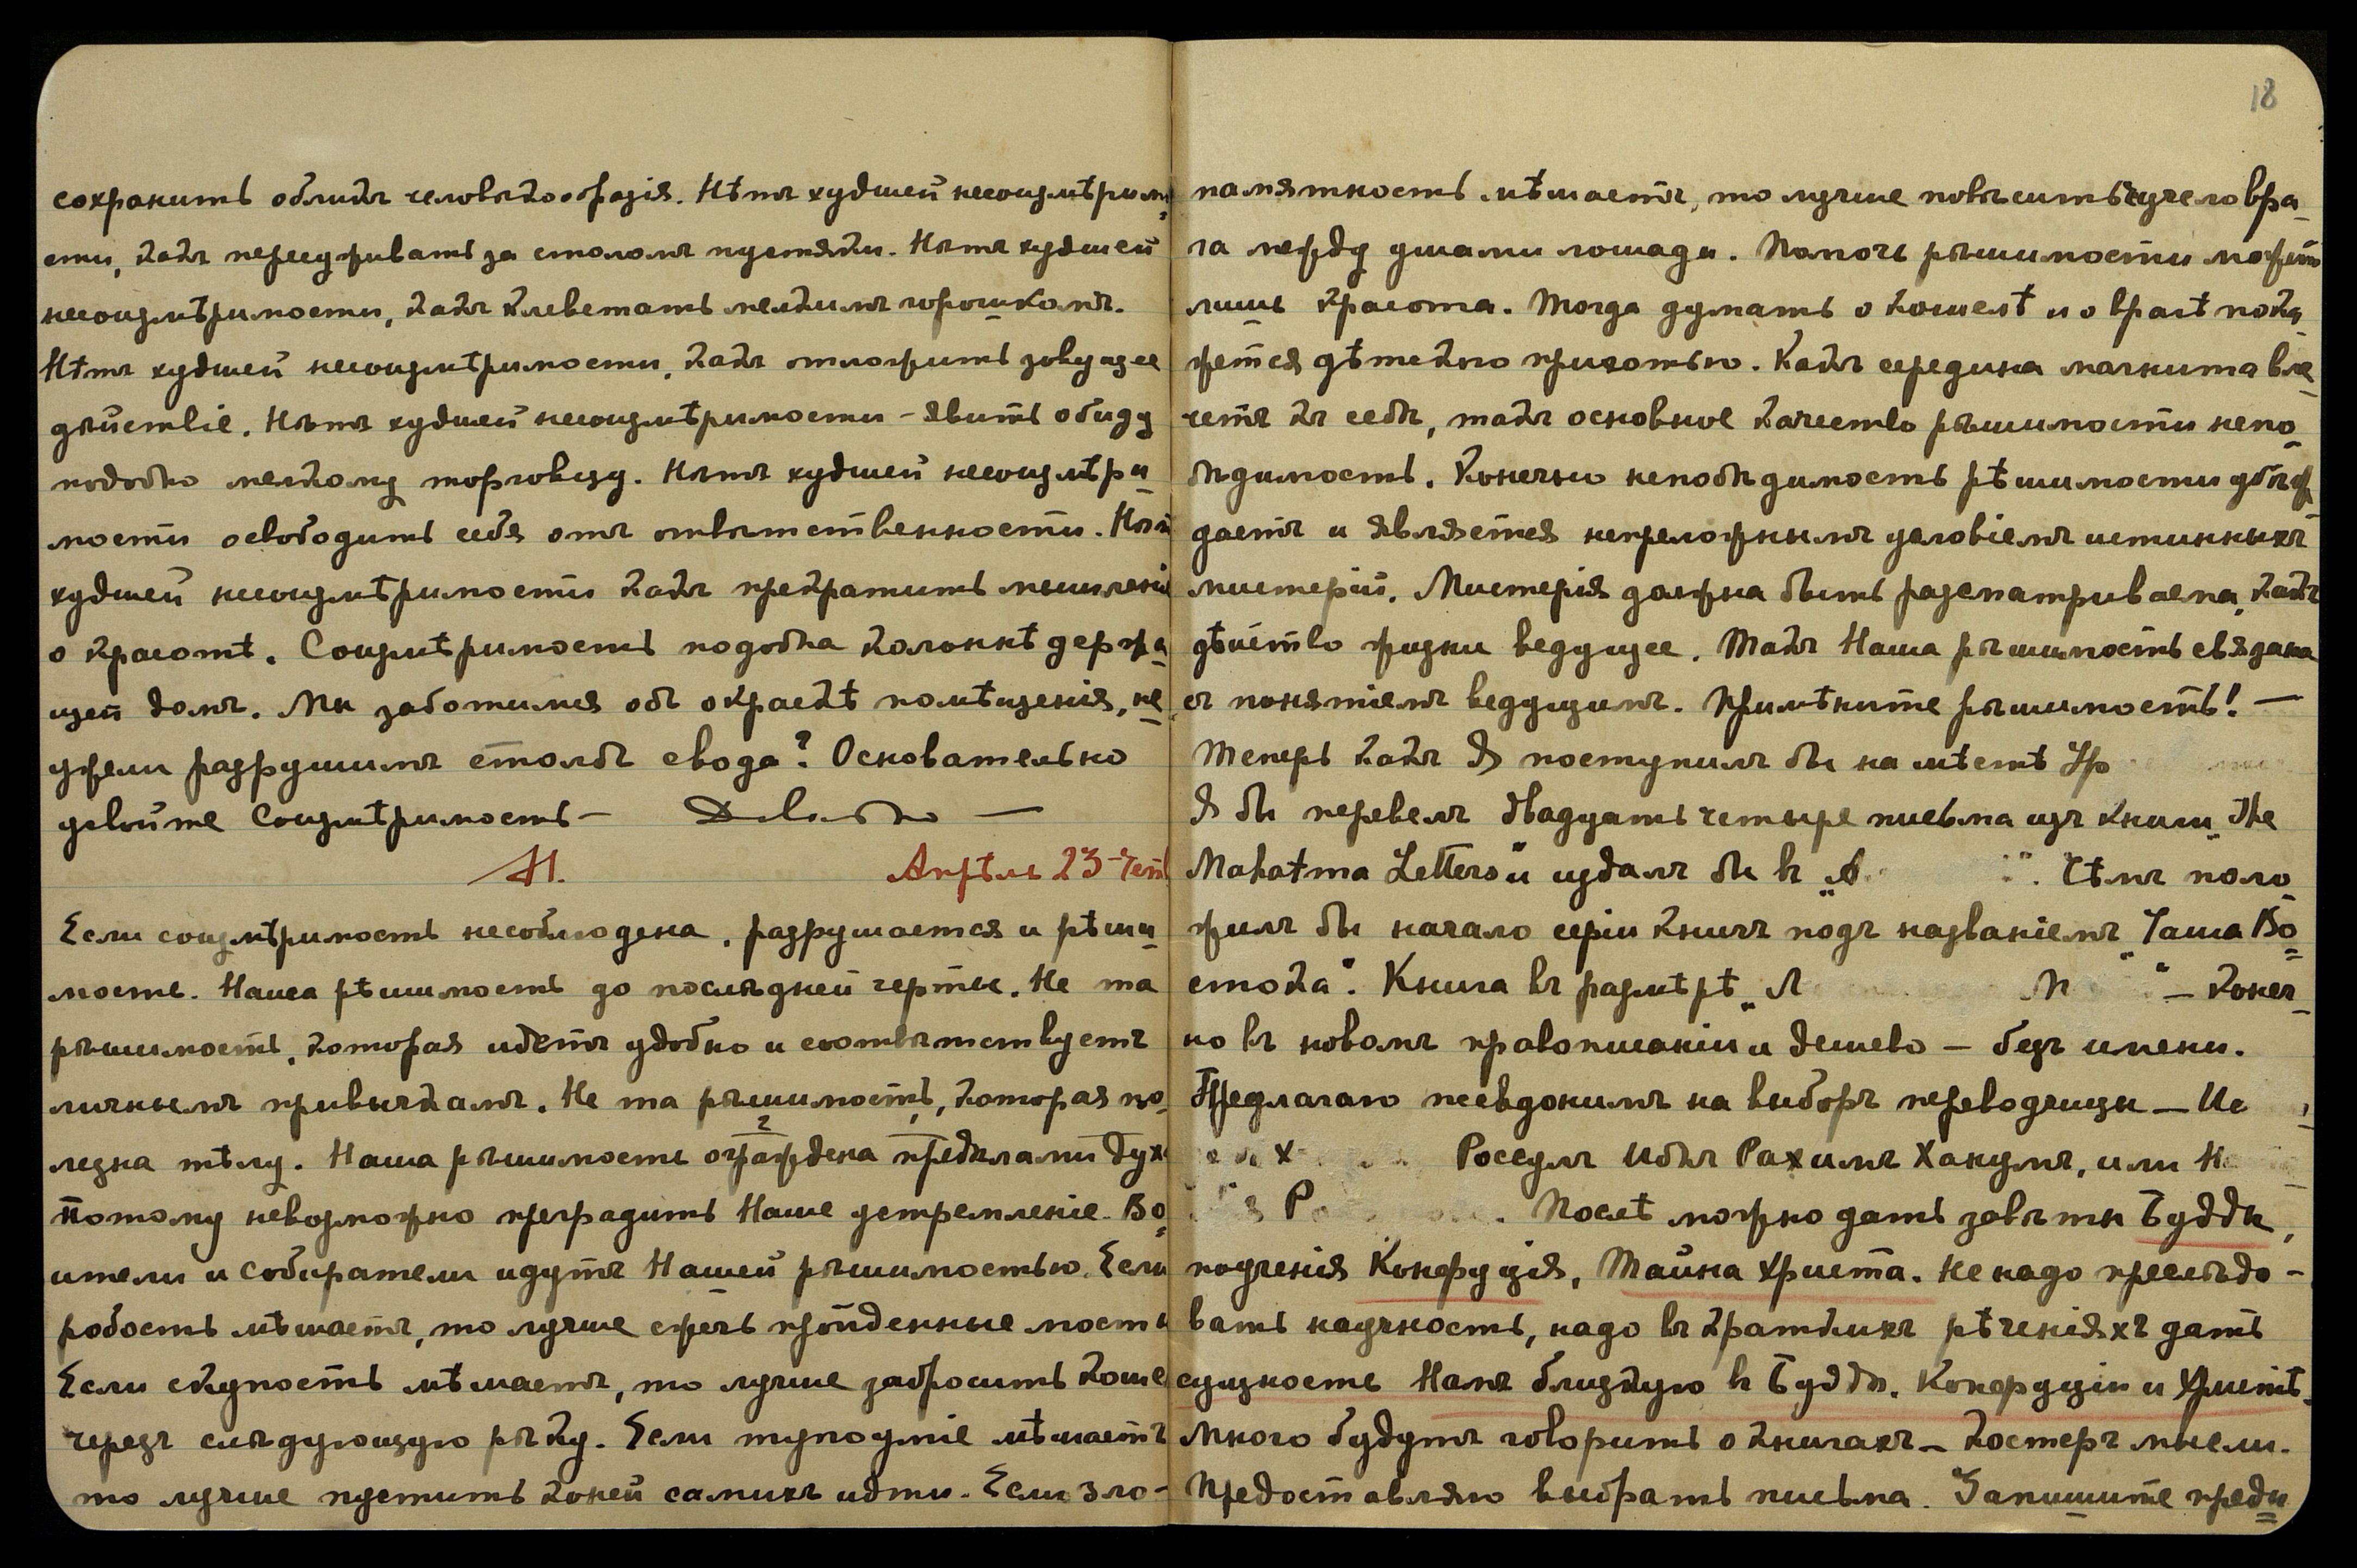 сохранить обликъ человѣкообразія. Нѣтъ худшей несоизмѣримо
сти, какъ пересуживать за столомъ пустяки. Нѣтъ худшей
несоизмѣримости, какъ клеветать мелкимъ горошкомъ.
Нѣтъ худшей несоизмѣримости, какъ отложить зовущее
дѣйствіе. Нѣтъ худшей несоизмѣримости – явить обиду
подобно мелкому торговцу. Нѣтъ худшей несоизмѣри
мости освободить себя отъ отвѣтственности. Нѣтъ
худшей несоизмѣримости какъ прекратить мышленіе
о красотѣ. Соизмѣримость подобна колоннѣ держа
щей домъ. Мы заботимся объ окраскѣ помѣщенія, не
ужели разрушимъ столбъ свода? Основательно
усвойте Соизмѣримость –
Апрѣль 23 – Чет
Если соизмѣримость несоблюдена, разрушается и рѣши
мость. Наша рѣшимость до послѣдней черты. Не та
рѣшимость, которая идетъ удобно и соотвѣтствуетъ
личнымъ привычкамъ. Не та рѣшимость, которая по
лезна тѣлу. Наша рѣшимость ограждена предѣлами духа
потому невозможно преградить Наше устремленіе. Во
ители и собиратели идутъ Нашей рѣшимостью. Если
робость мѣшаетъ, то лучше сжечь пройденные мосты
Если скупость мѣшаетъ, то лучше забросить коше
черезъ слѣдующую рѣку. Если тупоуміе мѣшаетъ
то лучше пустить коней самихъ идти. Если зло-
18
памятность мѣшаетъ, то лучше повѣсить чучело вра
га между ушами лошади. Помочь рѣшимости можетъ
лишь красота. Тогда думать о кошелѣ и о врагѣ пока
жется дѣтскою прихотью. Какъ середина магнита вле
четъ къ себѣ, такъ основное качество рѣшимости непо
бѣдимость. Конечно непобѣдимость рѣшимости убѣж
даетъ и является непреложнымъ условіемъ истинныхъ
мистерій. Мистерія должна быть разсматриваема, какъ
дѣйство жизни ведущее. Такъ Наша рѣшимость связана
съ понятіемъ ведущимъ. Примѣните рѣшимость! –
Теперь какъ Я поступилъ бы на мѣстѣ Ур
Я бы перевелъ двадцать четыре письма изъ книги „The
Mahatma Letters“ и издалъ бы въ Чѣмъ поло
жилъ бы начало серіи книгъ подъ названіемъ „Чаша Во
стока“. Книга въ размѣрѣ „Л М “ – конеч
но въ новомъ правописаніи и дешево – безъ имени.
Предлагаю псевдонимъ на выборъ переводчицы – Ис
х Роседлъ Ибнъ Рахимъ Ханумъ, или Н
Р . Послѣ можно дать завѣты Будды,
поученія Конфуція, Тайна Христа. Не надо преслѣдо-
вать научность, надо въ краткихъ рѣченіяхъ дать
сущность Намъ близкую въ Буддѣ, Конфуціи и Христѣ.
Много будутъ говорить о книгахъ – костеръ мысли.
Предоставляю выбрать письма. Запишите преди